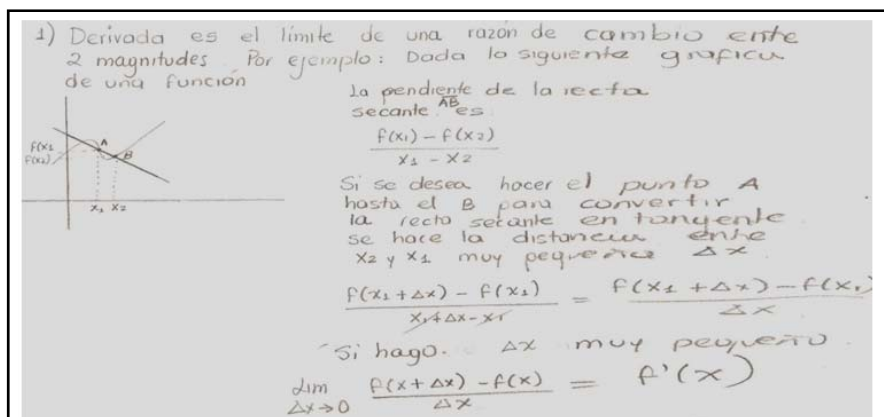 1) Derivada es el límite de una razón de cambio ente
2 magnitudes. Por ejemplo: Dada la siguiente grafica
de una función
f(x1
f(x2)
A
B
x1 x2
La pendiente de la recta
secante AB es
f(x1) - f(x2)
x1 - x2
Si se desea hacer el punto A
hasta el B para convertir
la recta secante en tangente
se hace la distancia ente
x2 y x1 muy pequeña Δx
f(x1 + Δx) - f(x1) = f(x1 + Δx) - f(x1)
x1 + Δx - x1 Δx
Si hago. Δx muy pequeño.
Lim f(x + Δx) - f(x) = f'(x)
Δx→0 Δx